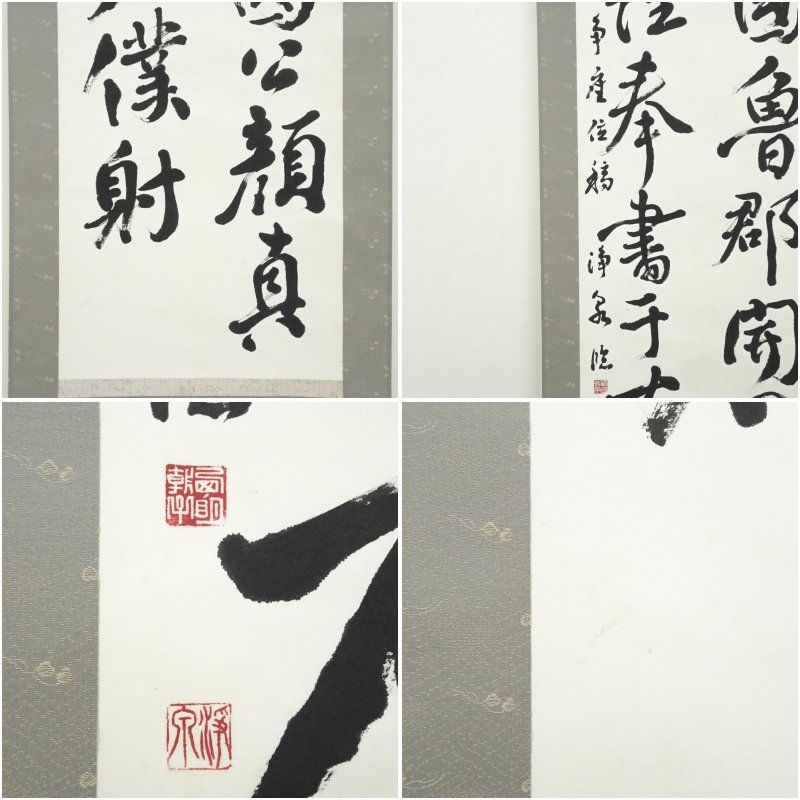 公顔真
僕射
魯郡開
奉書于
争座位稿 浄泉臨
浄泉